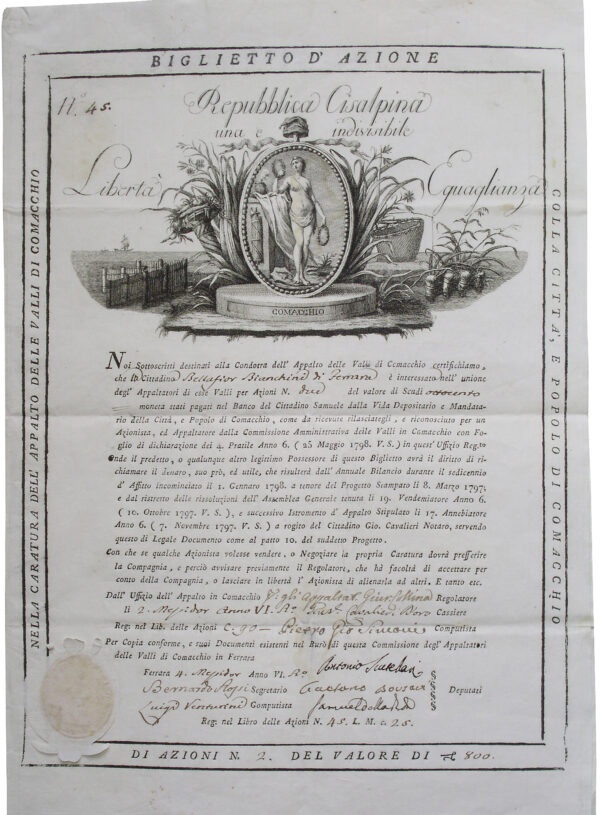 BIGLIETTO D' AZIONE
N.º 45.
Repubblica Cisalpina
una e indivisibile
Libertà
Eguaglianza
NELLA CARATURA DELL' APPALTO DELLE VALLI DI COMACCHIO
COLLA CITTA', E POPOLO DI COMACCHIO
COMACCHIO
Noi Sottoscritti destinati alla Condotta dell' Appalto delle Valli di Comacchio certifichiamo,
che il Cittadino Bellafior Bianchini di Ferrara è interessato nell' unione
degl' Appaltatori di esse Valli per Azioni N. due del valore di Scudi ottocento
moneta stati pagati nel Banco del Cittadino Samuele dalla Vida Depositario e Mandata-
rio della Città, e Popolo di Comacchio, come da ricevute rilasciategli, e riconosciuto per un
Azionista, ed Appaltatore dalla Commissione Amministrativa delle Valli in Comacchio con Fo-
glio di dichiarazione dei 4. Pratile Anno 6. (25 Maggio 1798. V. S.) in quest' Uffizio Reg.to
Onde il predetto, o qualunque altro legittimo Possessore di questo Biglietto avrà il diritto di ri-
chiamare il denaro, suo prò, ed utile, che risulterà dall' Annuale Bilancio durante il sedicennio
d' Affitto incominciato il 1. Gennaro 1798. a tenore del Progetto Stampato li 8. Marzo 1797.
e dal ristretto delle rissoluzioni dell' Assemblea Generale tenuta li 19. Vendemiatore Anno 6.
(10. Ottobre 1797. V. S.), e successivo Istromento d' Appalto Stipulato li 17. Annebiatore
Anno 6. (7. Novembre 1797. V. S.) a rogito del Cittadino Gio. Cavalieri Notaro, servendo
questo di Legale Documento come al patto 10. del suddetto Progetto.
Con che se qualche Azionista volesse vendere, o Negoziare la propria Caratura dovrà prefferire
la Compagnia, e perciò avvisare previamente il Regolatore, che hà facoltà di accettare per
conto della Compagnia, o lasciare in libertà l' Azionista di alienarla ad altri. E tanto etc.
Dall' Uffizio dell' Appalto in Comacchio Regolatore
li 2. Mesidor Anno VI. Rº Cassiere
Reg: nel Lib. delle Azioni C. 90 Computista
Per Copia conforme, e suoi Documenti esistenti nel Burò di questa Commissione degl' Appaltatori
delle Valli di Comacchio in Ferrara
Ferrara 4. Mesidor Anno VI. Rº Antonio
Bernardo Segretario Gaetano Deputati
Luigi Venturini Computista
Reg: nel Libro delle Azioni N. 45. L. M. c. 25.
DI AZIONI N. 2. DEL VALORE DI 800.